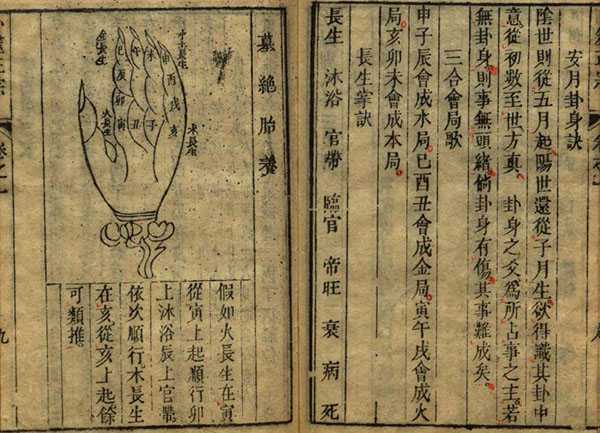 安月卦身訣
陰世則從五月起陽世還從子月生欲得識其卦中
意從初數至世方真 卦身之爻為所占事之主若
無卦身則事無頭緒倘卦身有傷其事難成矣
三合會局歌
申子辰會成水局巳酉丑會成金局寅午戌會成火
局亥卯未會成木局
長生掌訣
長生 沐浴 官帶 臨官 帝旺 衰 病 死
墓絕胎養
水長生
申酉戌亥
木長生
未子
午丑
巳辰卯寅
金長生
火長生
假如火長生在寅
從寅上起順行卯
上沐浴辰上官帶
依次順行木長生
在亥從亥上起餘
可類推
正宗
卷之一
九